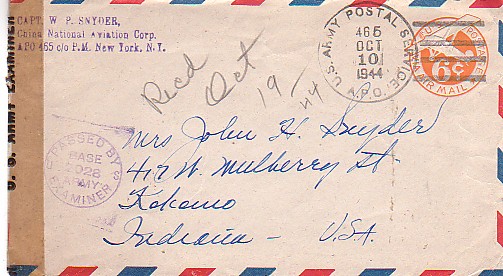 CAPT. W. P. SNYDER,
China National Aviation Corp.
APO 465 c/o P.M. New York, N.Y.
U. S. ARMY EXAMINER
U.S. ARMY POSTAL SERVICE
A.P.O.
465
OCT
10
1944
6¢
VIA AIR MAIL
Recd Oct 19/44
PASSED BY
BASE
ARMY
EXAMINER
Mrs John H. Snyder
417 W. Mulberry St.
Kokomo
Indiana - U.S.A.